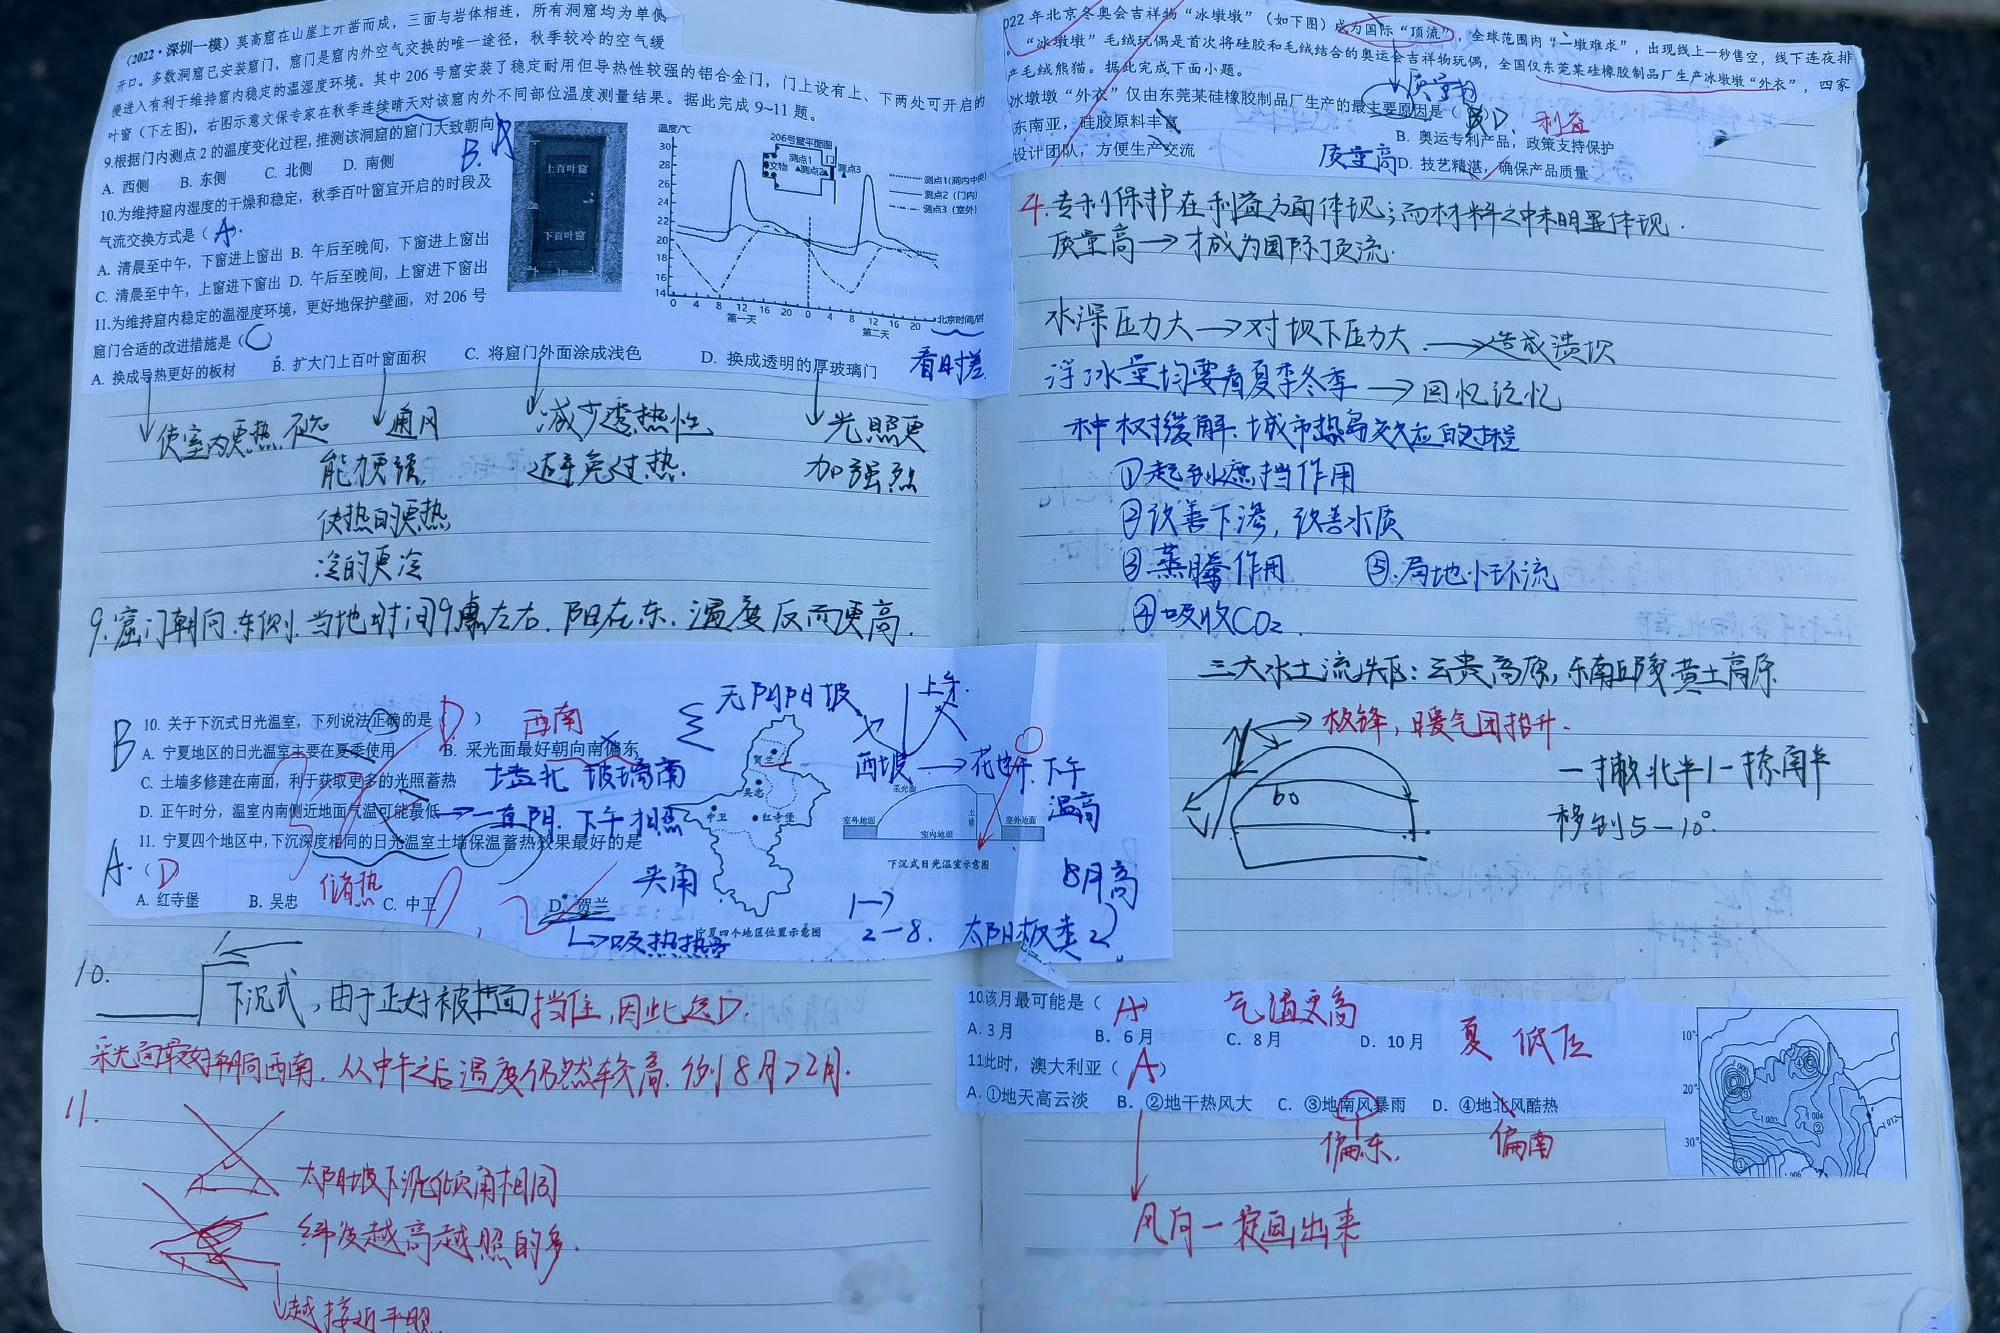 (2022·深圳一模)莫高窟在山崖上开凿而成，三面与岩体相连，所有洞窟均为单侧
开口。多数洞窟已安装窟门，窟门是窟内外空气交换的唯一途径，秋季较冷的空气缓
慢进入有利于维持窟内稳定的温湿度环境。其中206号窟安装了稳定耐用但导热性较强的铝合金门，门上设有上、下两处可开启的
叶窗（下左图），右图示意文保专家在秋季连续晴天对该窟内外不同部位温度测量结果。据此完成9~11题。
9.根据门内测点2的温度变化过程，推测该洞窟的窟门大致朝向
B.
A. 西侧 B. 东侧 C. 北侧 D. 南侧
10.为维持窟内湿度的干燥和稳定，秋季百叶窗宜开启的时段及
气流交换方式是（ A ）.
A. 清晨至中午，下窗进上窗出 B. 午后至晚间，下窗进上窗出
C. 清晨至中午，上窗进下窗出 D. 午后至晚间，上窗进下窗出
11.为维持窟内稳定的温湿度环境，更好地保护壁画，对206号
窟门合适的改进措施是（ C
A. 换成导热更好的板材 B. 扩大门上百叶窗面积 C. 将窟门外面涂成浅色 D. 换成透明的厚玻璃门
上百叶窗
下百叶窗
温度/℃
30
28
26
24
22
20
18
16
14
0 4 8 12 16 20 0 4 8 12 16 20 北京时间/时
第一天 第二天
206号窟平面图
测点1 门
文物 测点2 测点3
测点1（洞内中央）
测点2（门内）
测点3（室外）
看时差
使室内更热
通风
能力更强,
使热的更热
冷的更冷
减少透热性
避免过热.
光照更
加强烈
9.窟门朝向.东侧.当地时间9点左右.阳在东.温度反而更高.
10. 关于下沉式日光温室，下列说法正确的是（ D ）
B
西南
A. 宁夏地区的日光温室主要在夏季使用 B. 采光面最好朝向南偏东
C. 土墙多修建在南面，利于获取更多的光照蓄热
墙北 玻璃南
D. 正午时分，温室内南侧近地面气温可能最低
一直阴.下午相照
11. 宁夏四个地区中，下沉深度相同的日光温室土墙保温蓄热效果最好的是
A.
（ D
A. 红寺堡 B. 吴忠 C. 中卫 D. 贺兰
储热
夹角
吸热热量
无阴阳坡
上午.
西坡 → 花开.下午
温高
8月高
1→
2-8. 太阳板卖2
贺兰
吴忠
中卫
红寺堡
宁夏四个地区位置示意图
采光面
土墙
室外地面
室内地面
室外地面
下沉式日光温室示意图
10.
下沉式，由于正好被墙面挡住,因此选D.
采光面最好朝向西南. 从中午之后温度仍然较高. 例8月>2月.
11.
太阳坡下沉倾角相同
纬度越高越照的多.
越接近平照.
022年北京冬奥会吉祥物“冰墩墩”（如下图）成为国际“顶流”，全球范围内“一墩难求”，出现线上一秒售空，线下连夜排
。“冰墩墩”毛绒玩偶是首次将硅胶和毛绒结合的奥运会吉祥物玩偶，全国仅东莞某硅橡胶制品厂生产冰墩墩“外衣”，四家
产毛绒熊猫。据此完成下面小题。
质量好
冰墩墩“外衣”仅由东莞某硅橡胶制品厂生产的最主要原因是（ D.
利益
东南亚，硅胶原料丰富 B. 奥运专利产品，政策支持保护
设计团队，方便生产交流 D. 技艺精湛，确保产品质量
质量高
4.专利保护在利益方面体现;而材料之中未明显体现.
质量高→才成为国际顶流.
水深压力大→对坝下压力大→造成溃坝
浮冰量均要看夏季冬季→回忆记忆
种树缓解.城市热岛效应的过程
①起到遮挡作用
②改善下渗，改善水质
③蒸腾作用 ⑤.局地小环流
④吸收CO₂.
三大水土流失区:云贵高原,东南丘陵黄土高原
→ 极锋，暖气团抬升.
60
一撇北半 一捺南半
移到5-10°.
10.该月最可能是（ A ）
气温更高
A. 3月 B. 6月 C. 8月 D. 10月
夏 低压
11此时，澳大利亚（ A ）
A. ①地天高云淡 B. ②地干热风大 C. ③地南风暴雨 D. ④地北风酷热
偏东.
偏南
风向一定画出来
10°
20°
30°